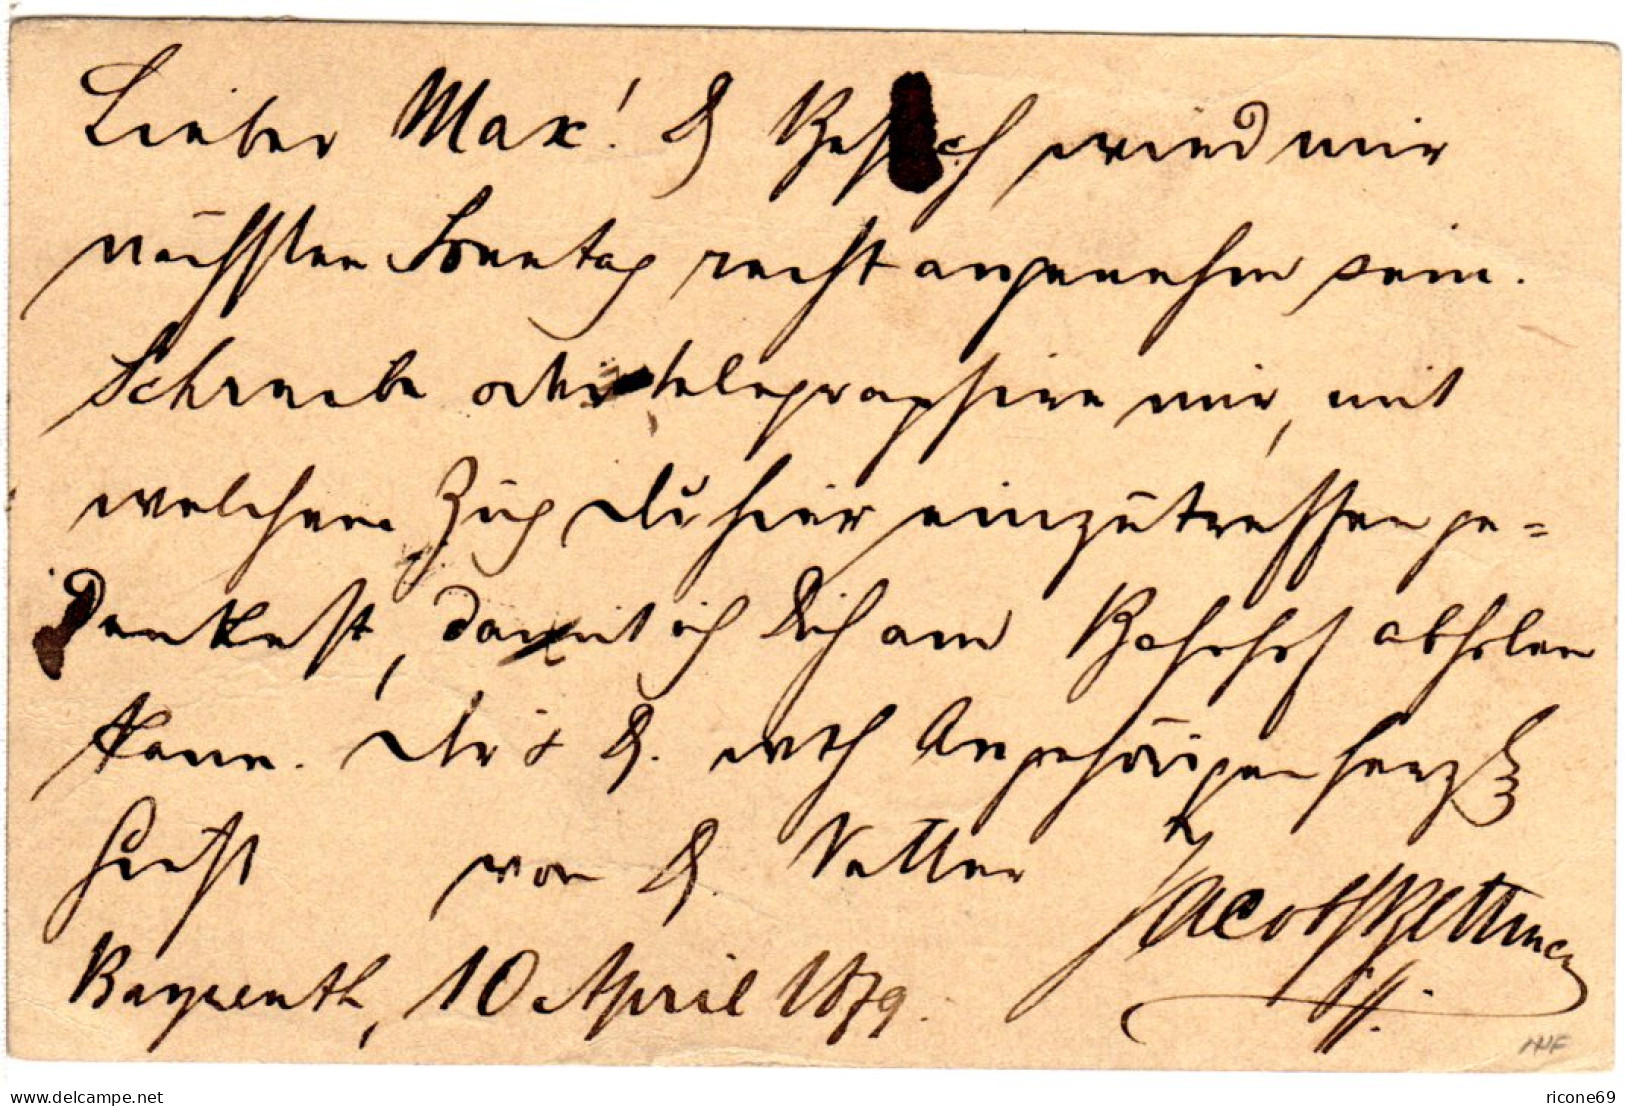 Lieber Max! D Besuch wird mir
nächsten Sonntag recht angenehm sein.
Schreibe oder telegraphiere mir, mit
welchem Zug Du hier einzutreffen ge=
denkest, damit ich Dich am Bahnhof abholen
kann. Dir & D. wth Angehörigen herzl
Gruß von D. Vetter
Jacob
Bayreuth, 10 April 1879.
delcampe.net
ricone69